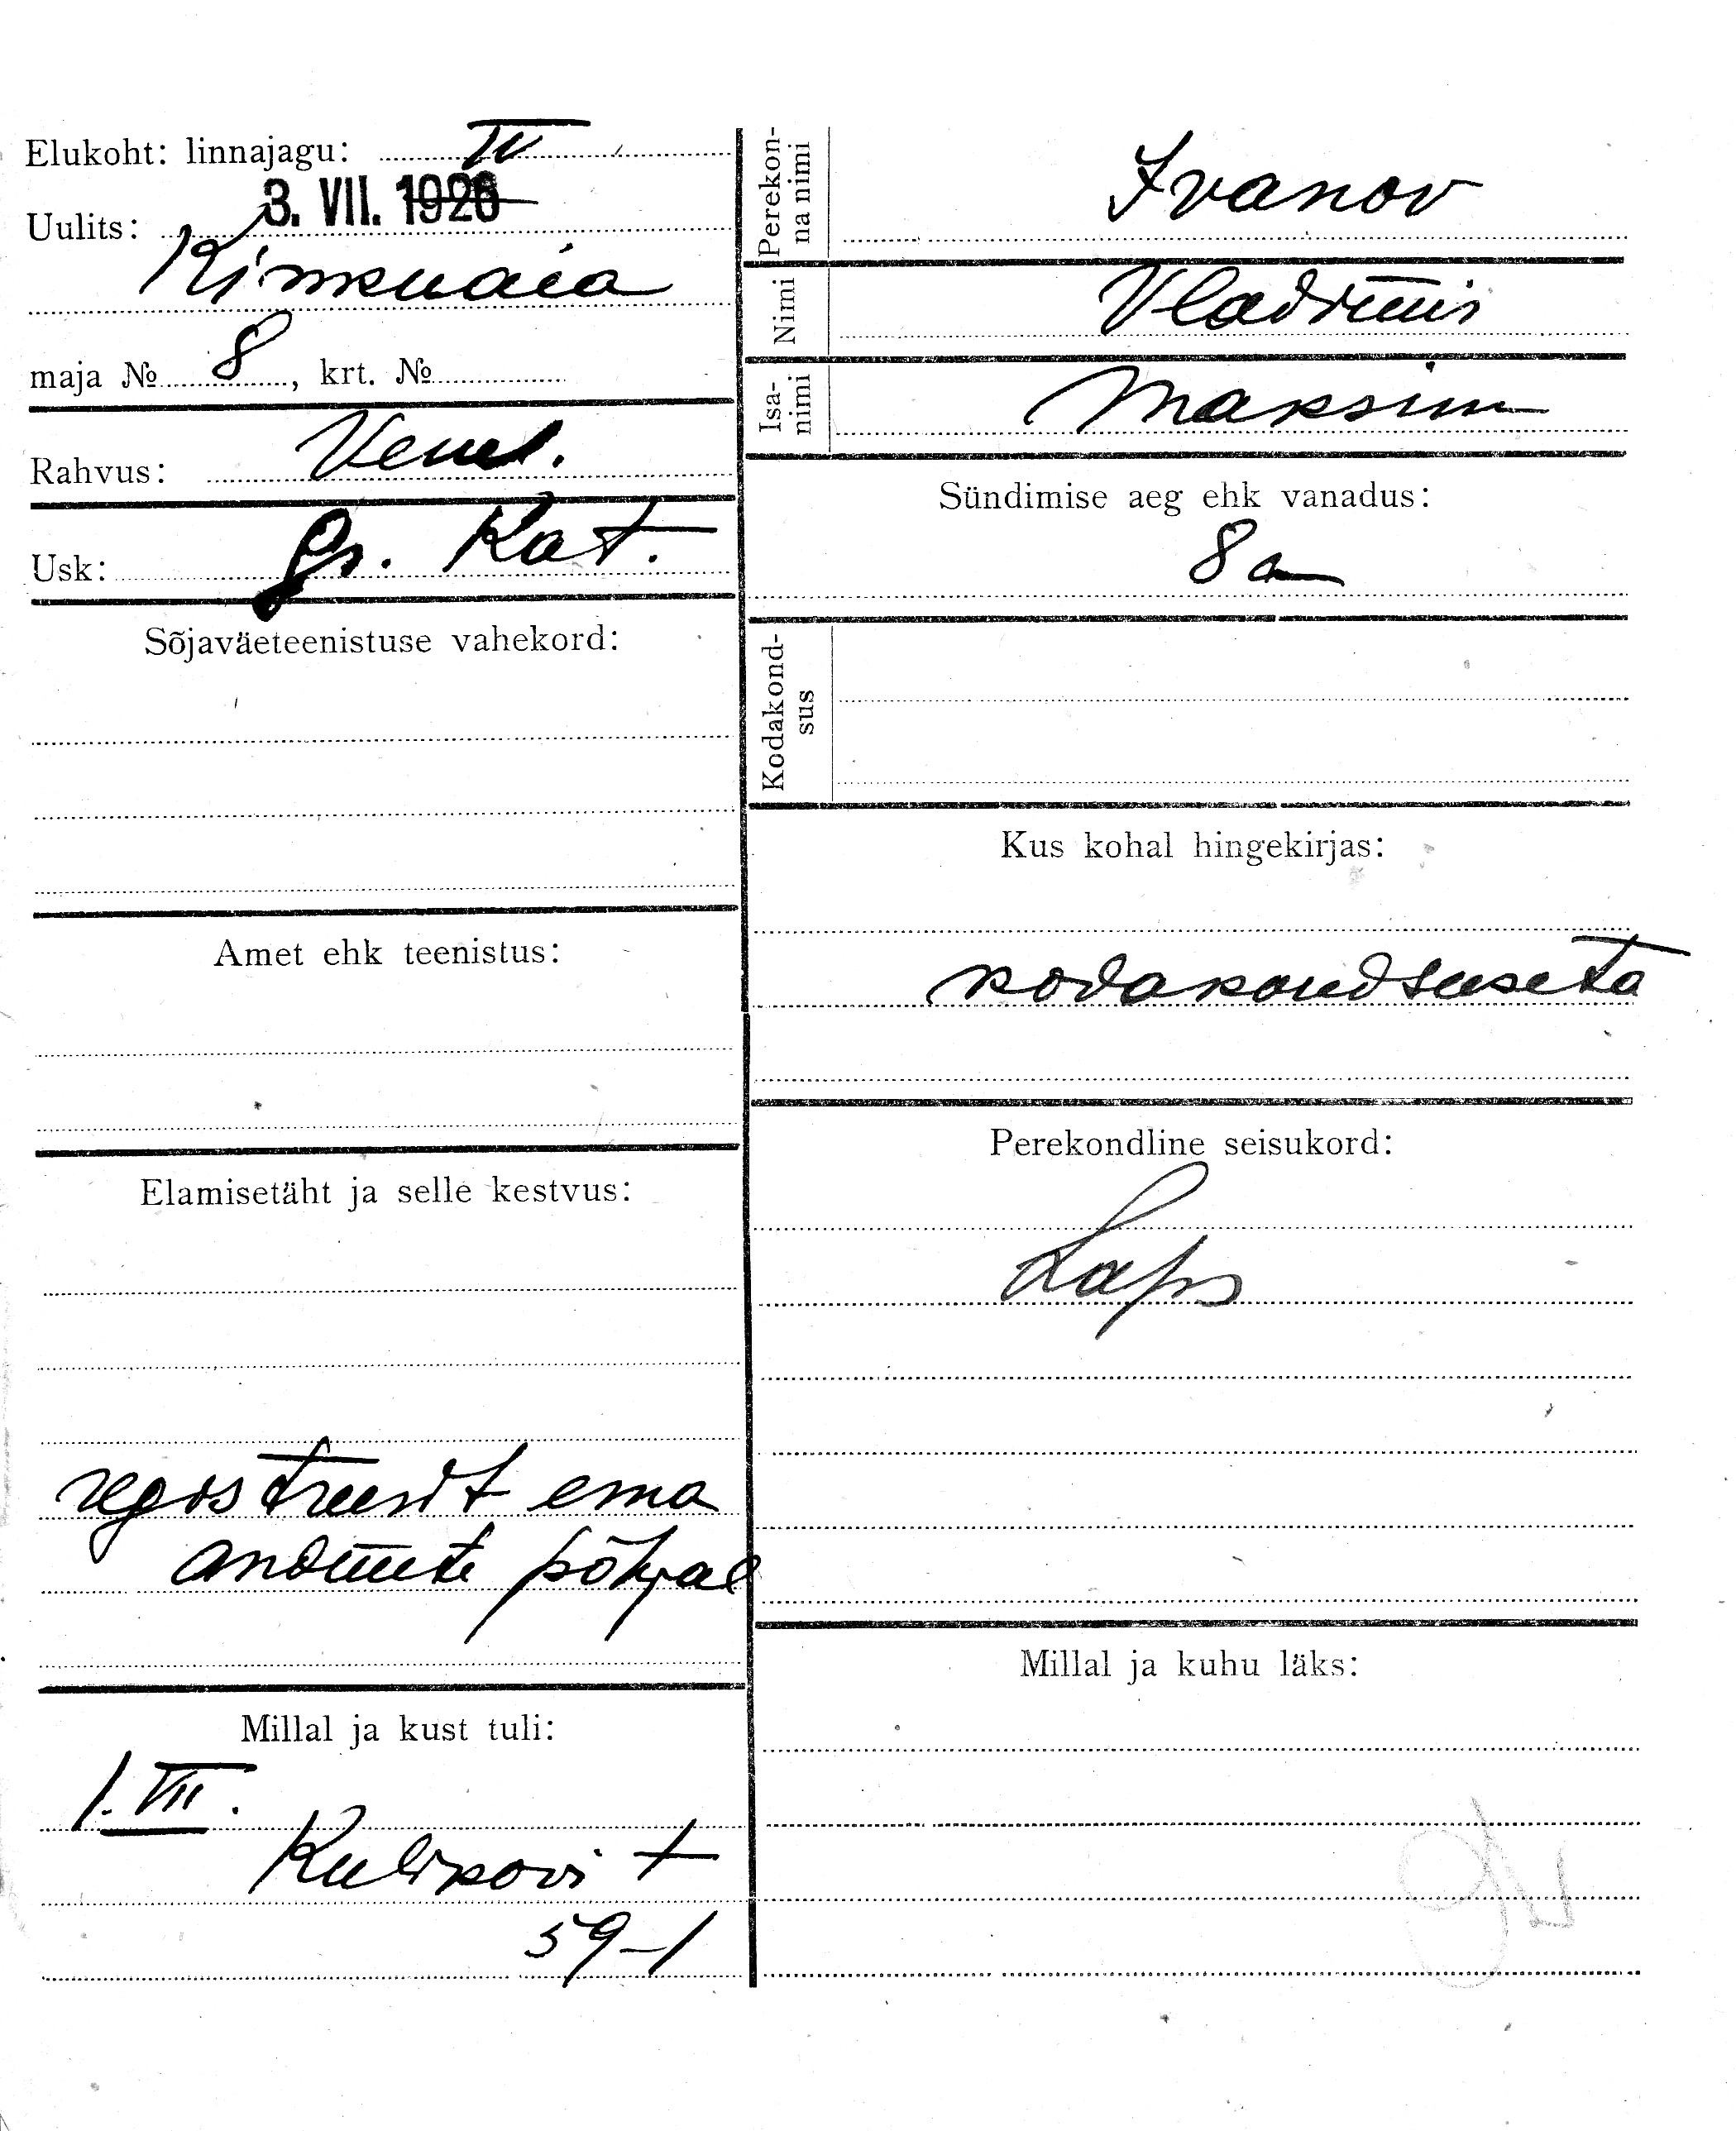 Elukoht: linnajagu: IV
Uulits: 3. VII. 1926
maja № 8, krt. №
Rahvus: Venel.
Usk: Gr. Kat.
Sõjaväeteenistuse vahekord:
Amet ehk teenistus:
Elamisetäht ja selle kestvus:
registreerit ema
andmete põhjal
Millal ja kust tuli:
1. VII.
Kulikovi t
59-1
Perekon-
na nimi
Ivanov
Nimi
Vladimir
Isa-
nimi
Maksim
Sündimise aeg ehk vanadus:
8 a
Kodakond-
sus
Kus kohal hingekirjas:
kodakondsuseta
Perekondline seisukord:
Laps
Millal ja kuhu läks: